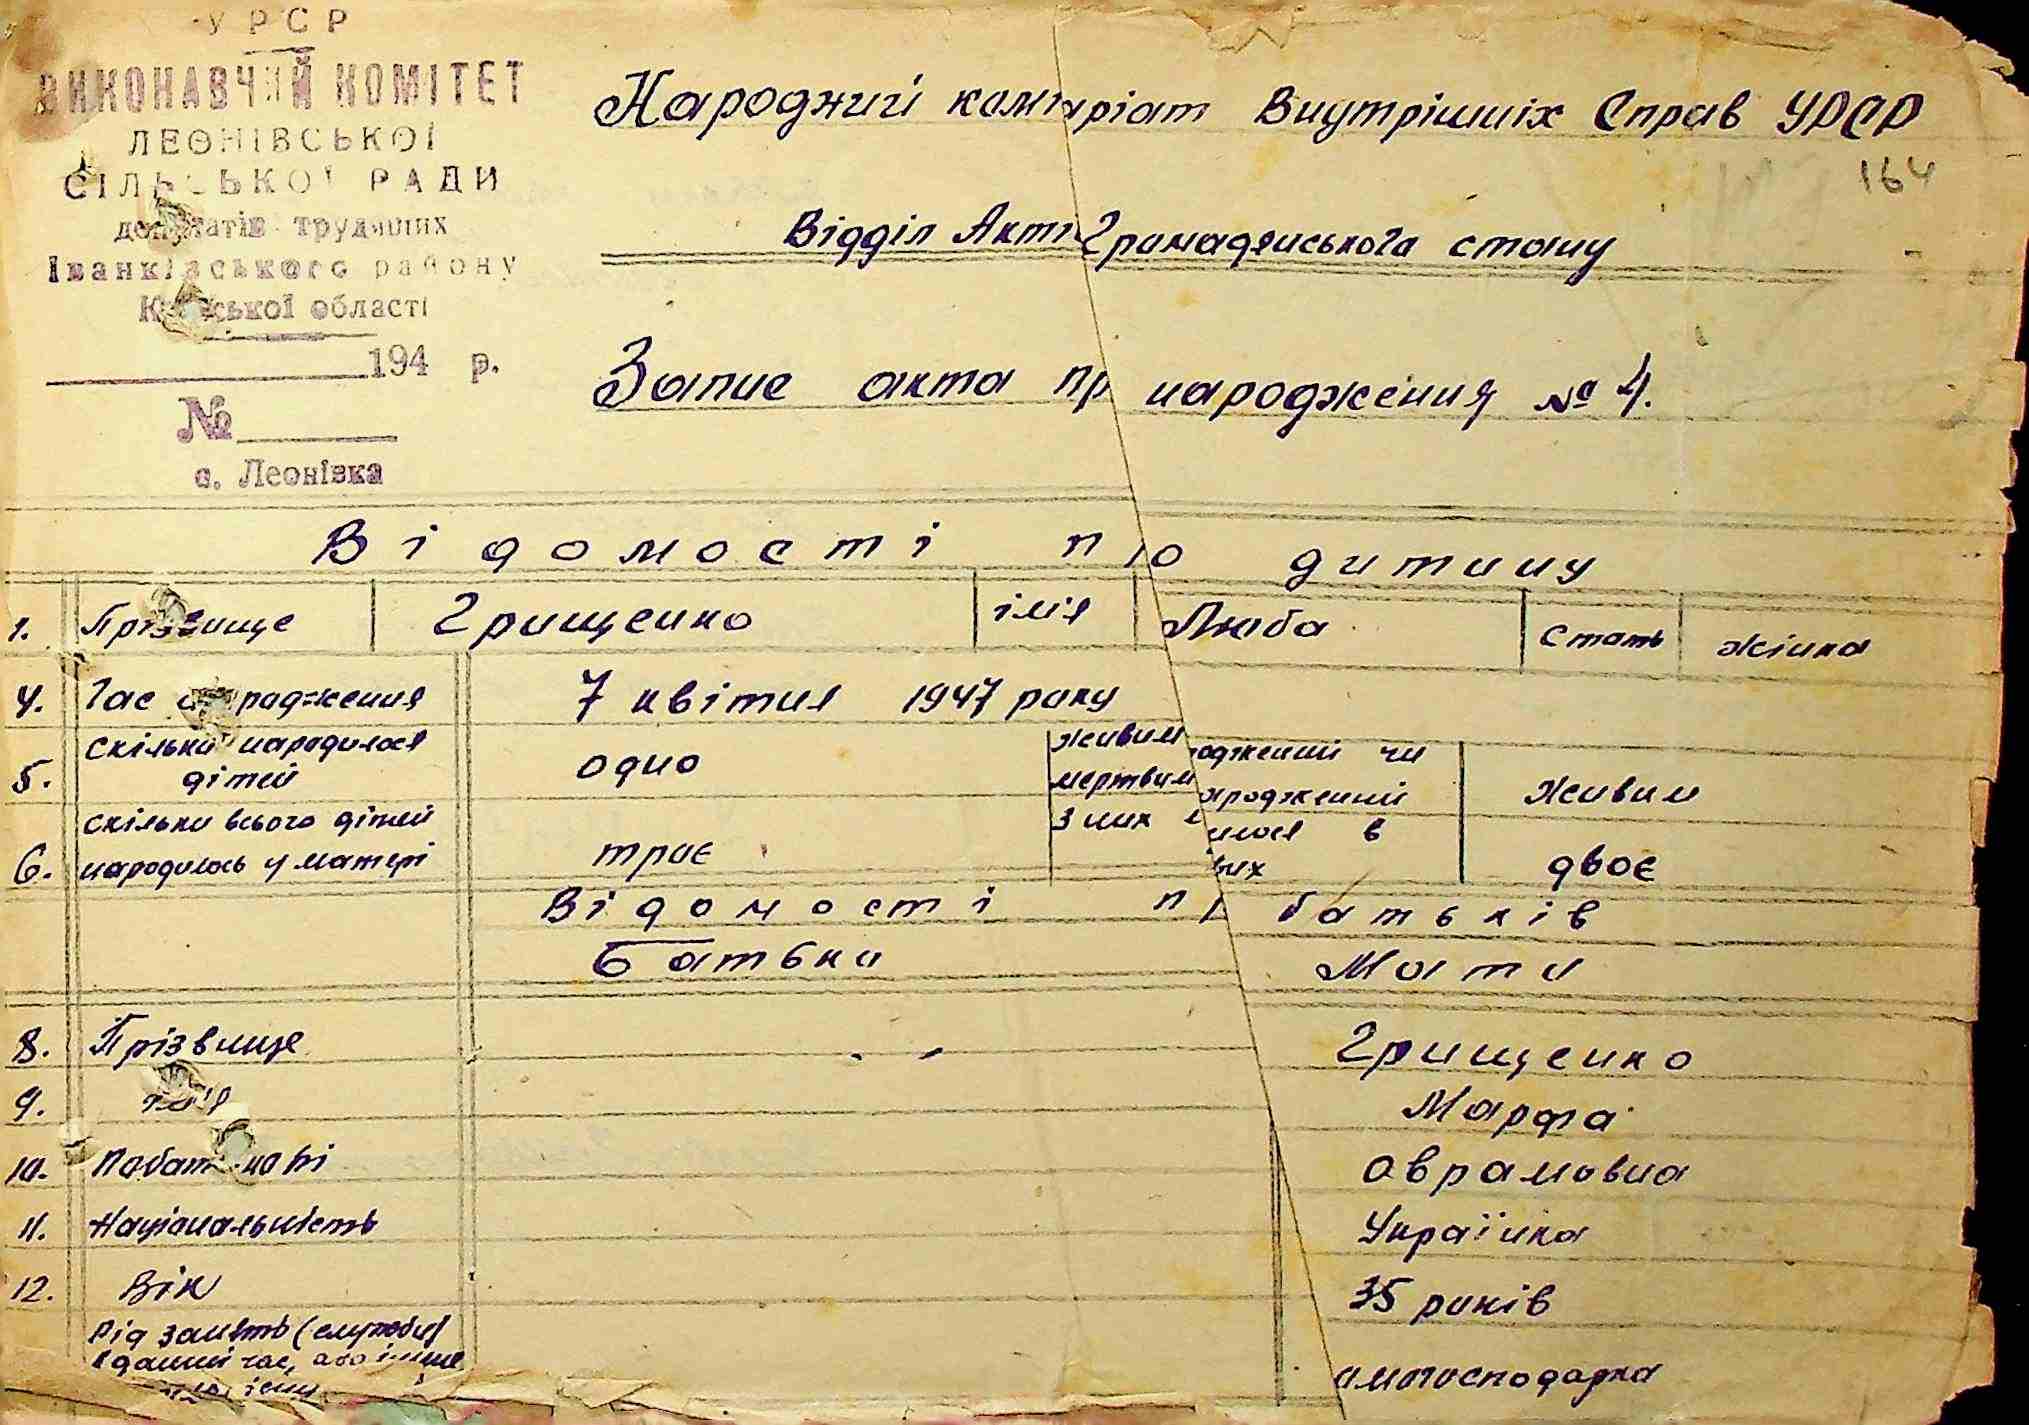 УРСР
ВИКОНАВЧИЙ КОМІТЕТ
ЛЕОНІВСЬКОЇ
СІЛЬСЬКОЇ РАДИ
депутатів трудящих
Іванківського району
Київської області
194 р.
№
с. Леонівка
Народний комісаріат Внутрішніх Справ УРСР
164
Відділ Актів Громадянського стану
Запис акта пр народження № 4.
Відомості про дитину
1. Прізвище Грищенко ім'я Люба Стать жінка
4. Час народження 7 квітня 1947 року
5. Скільки народилося дітей одно живим мертвим
родженний чи народженний живим
6. Скільки всього дітей народилось у матері троє
З них лилося в живих двоє
Відомості пр батьків
Батько Мати
8. Прізвище Грищенко
9. ім'я Марфа
10. Побатькові Оврамовна
11. Національність Українка
12. Вік 35 років
Рід занять (служби)
в данний час, або інше
омогосподарка